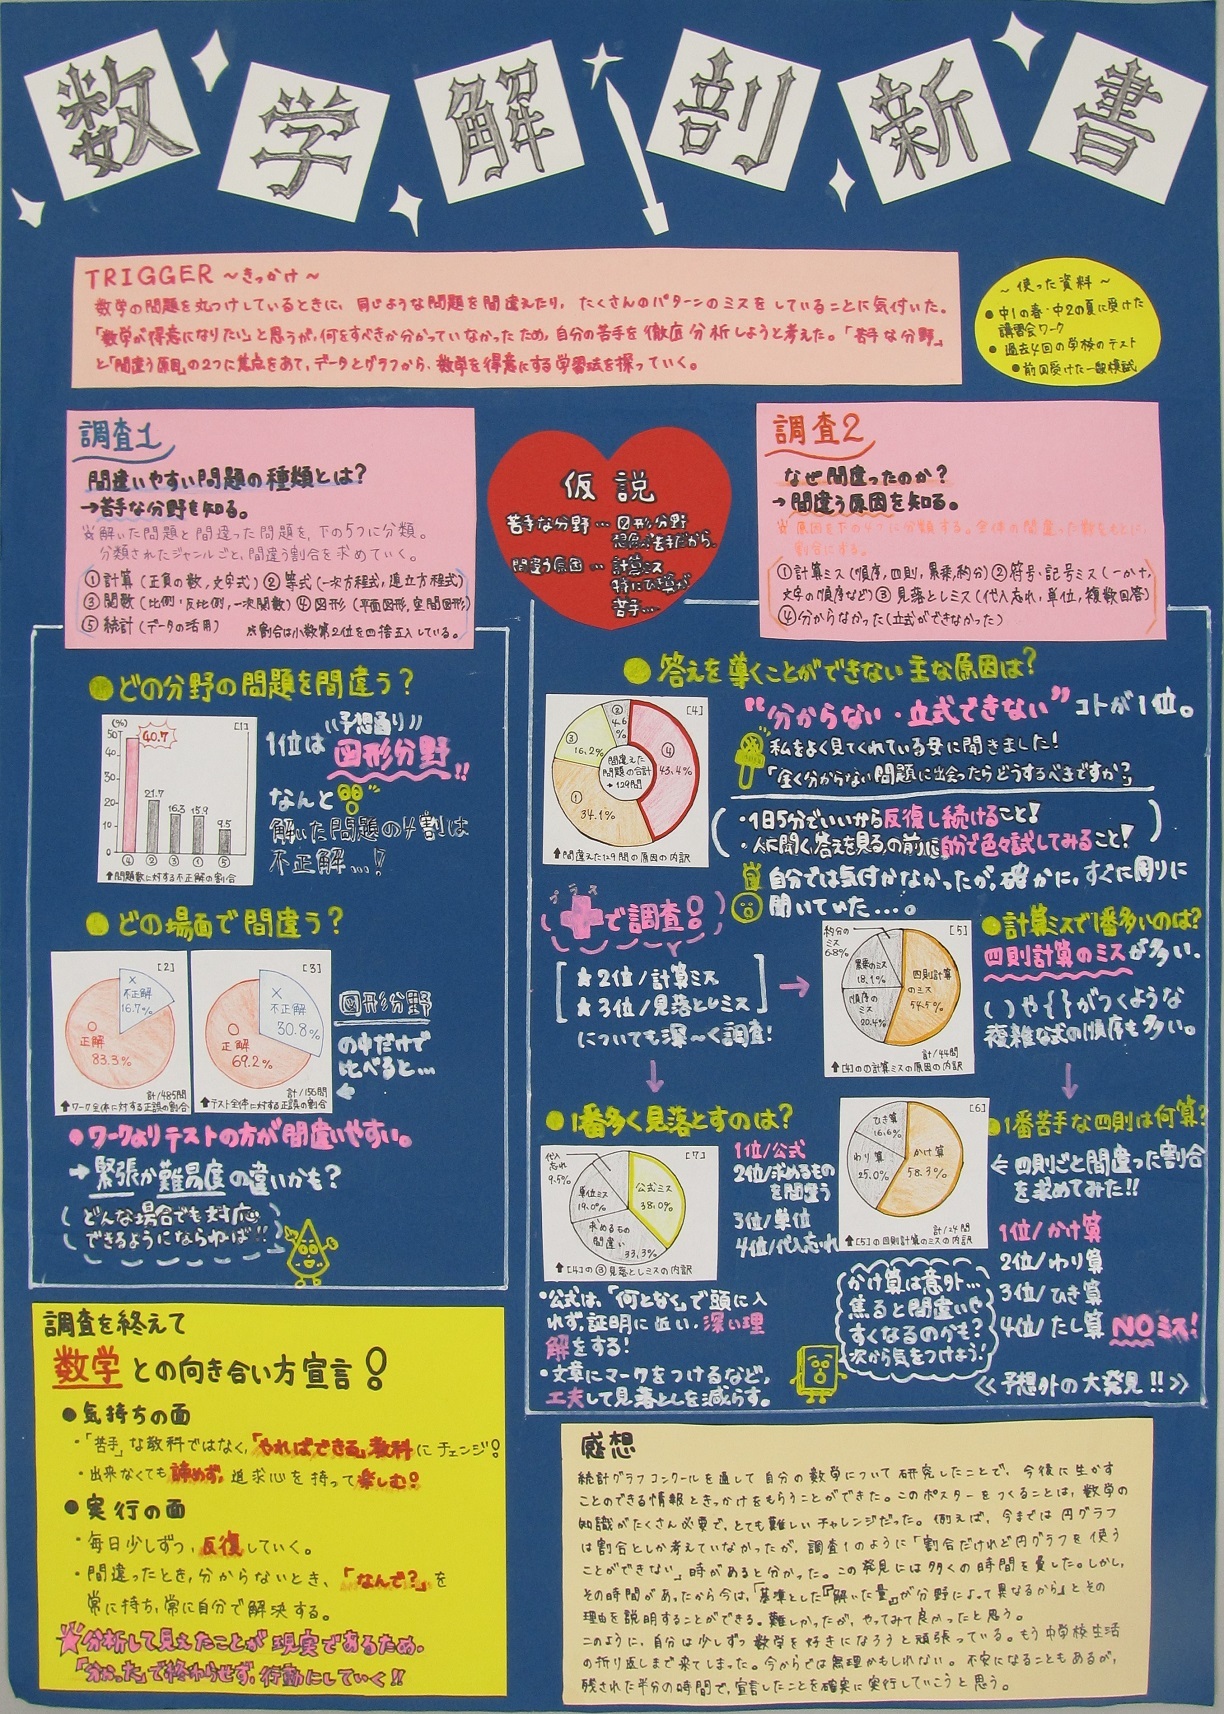 数学解剖新書
TRIGGER ～きっかけ～
数学の問題を丸つけしているときに、同じような問題を間違えたり、たくさんのパターンのミスをしていることに気付いた。
「数学が得意になりたい」と思うが、何をすべきか分かっていなかったため、自分の苦手を徹底分析しようと考えた。「苦手な分野」
と「間違う原因」の2つに焦点をあて、データとグラフから、数学を得意にする学習法を探っていく。
～使った資料～
●中1の春・中2の夏に受けた
講習会ワーク
●過去4回の学校のテスト
●前回受けた一斉模試
調査1
間違いやすい問題の種類とは?
→苦手な分野を知る。
※解いた問題と間違った問題を、下の5つに分類。
分類されたジャンルごと、間違う割合を求めていく。
①計算(正負の数,文字式)②等式(一次方程式,連立方程式)
③関数(比例・反比例,一次関数)④図形(平面図形,空間図形)
⑤統計(データの活用)
※割合は小数第2位を四捨五入している。
仮説
苦手な分野…図形分野
想像が苦手だから。
間違う原因…計算ミス
特にひき算が
苦手…
調査2
なぜ間違ったのか?
→間違う原因を知る。
※原因を下の4つに分類する。全体の間違った数をもとに、
割合にする。
①計算ミス(順序,四則,累乗,約分)②符号・記号ミス(-か+,
文字の順序など)③見落としミス(代入忘れ,単位,複数回答)
④分からなかった(立式ができなかった)
●どの分野の問題を間違う?
(%)
[1]
50
40
30
20
10
0
40.7
21.7
16.3
15.9
9.5
④
②
③
①
⑤
↑問題数に対する不正解の割合
1位は
予想通り
図形分野!!
なんと
解いた問題の4割は
不正解…!
●どの場面で間違う?
[2]
×
不正解
16.7%
○
正解
83.3%
計/485問
↑ワーク全体に対する正誤の割合
[3]
×
不正解
30.8%
○
正解
69.2%
計/156問
↑テスト全体に対する正誤の割合
図形分野
の中だけで
比べると…
●ワークよりテストの方が間違いやすい。
→緊張か難易度の違いかも?
(どんな場合でも対応
できるようにならねば!!)
●答えを導くことができない主な原因は?
[4]
②
4.6
%
③
16.2%
④
43.4%
①
34.1%
間違えた
問題の合計
→129問
↑間違えた129問の原因の内訳
"分からない・立式できない"コトが1位。
私をよく見てくれている母に聞きました!
「全く分からない問題に出会ったらどうするべきですか?」
・1日5分でいいから反復し続けること!
・人に聞く、答えを見る、の前に自分で色々試してみること!
自分では気付かなかったが、確かに、すぐに周りに
聞いていた…。
プラス
+で調査!
★2位/計算ミス
★3位/見落としミス
についても深〜く調査!
[5]
約分の
ミス
6.8%
累乗のミス
18.1%
順序の
ミス
20.4%
四則計算
のミス
54.5%
計/44問
↑[4]の①計算ミスの原因の内訳
●計算ミスで1番多いのは?
四則計算のミスが多い。
( )や{ }がつくような
複雑な式の順序も多い。
●1番多く見落とすのは?
[7]
代入
忘れ
9.5%
単位ミス
19.0%
求めるもの
間違い
33.3%
公式ミス
38.0%
↑[4]の③見落としミスの内訳
1位/公式
2位/求めるもの
を間違う
3位/単位
4位/代入忘れ
[6]
ひき算
16.6%
わり算
25.0%
かけ算
58.3%
計/24問
↑[5]の四則計算のミスの内訳
●1番苦手な四則は何算?
←四則ごと間違った割合
を求めてみた!!
1位/かけ算
2位/わり算
3位/ひき算
4位/たし算 NOミス!
・公式は、「何となく」で頭に入
れず、証明に近い、深い理
解をする!
・文章にマークをつけるなど、
工夫して見落としを減らす。
かけ算は意外…
焦ると間違いや
すくなるのかも?
次から気をつけよう!
≪予想外の大発見!!≫
調査を終えて
数学との向き合い方宣言!
●気持ちの面
・「苦手」な教科ではなく、「やればできる」教科にチェンジ!
・出来なくても諦めず、追求心を持って楽しむ!
●実行の面
・毎日少しずつ、反復していく。
・間違ったとき、分からないとき、「なんで?」を
常に持ち、常に自分で解決する。
★分析して見えたことが現実であるため、
「分かった」で終わらせず、行動にしていく!!
感想
統計グラフコンクールを通して自分の数学について研究したことで、今後に生かす
ことのできる情報ときっかけをもらうことができた。このポスターをつくることは、数学の
知識がたくさん必要で、とても難しいチャレンジだった。例えば、今までは円グラフ
は割合としか考えていなかったが、調査1のように「割合だけれど円グラフを使う
ことができない」時があると分かった。この発見には多くの時間を要した。しかし、
その時間があったから今は、「基準とした『解いた量』が分野によって異なるから」とその
理由を説明することができる。難しかったが、やってみて良かったと思う。
このように、自分は少しずつ数学を好きになろうと頑張っている。もう中学校生活
の折り返しまで来てしまった。今からでは無理かもしれない。不安になることもあるが、
残された半分の時間で、宣言したことを確実に実行していこうと思う。